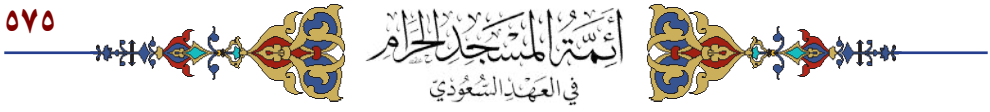 ٥٧٥
أَئِمَّةُ المَسْجِدِ الحَرَامِ
في العَهْدِ السُّعُودِيّ